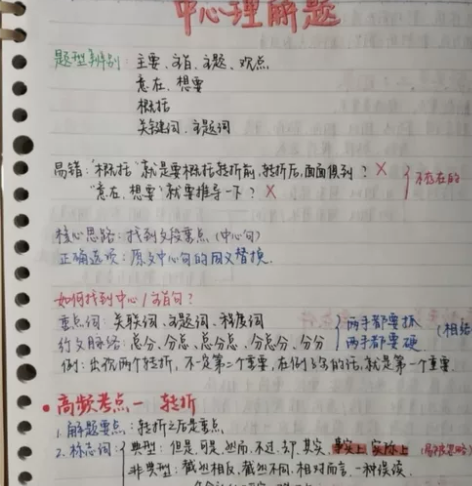 中心理解题
题型辨别 主要、主旨、主题、观点
意在、想要
概括
关键词、主题词
易错:“概括”就是要概括转折前、转折后,面面俱到?×
“意在、想要”就要推导一下?× 不存在的
核心思路:找到文段重点(中心句)
正确选项:原文中心句的同义替换.
如何找到中心/主旨句?
重点词:关联词、主题词、程度词 两手都要抓
行文脉络:总分、分总、总分总、分总分、分分 两手都要硬 (相结
例:出现两个转折,不一定第二个重要,在例子写的话,就是第一个重要
•高频考点一 转折
1.解题要点:转折之后是重点
2.标志词: 典型:但是、可是、然而、不过、却、其实、事实上、实际上
非典型:截然相反、截然不同、相对而言、一种误读、